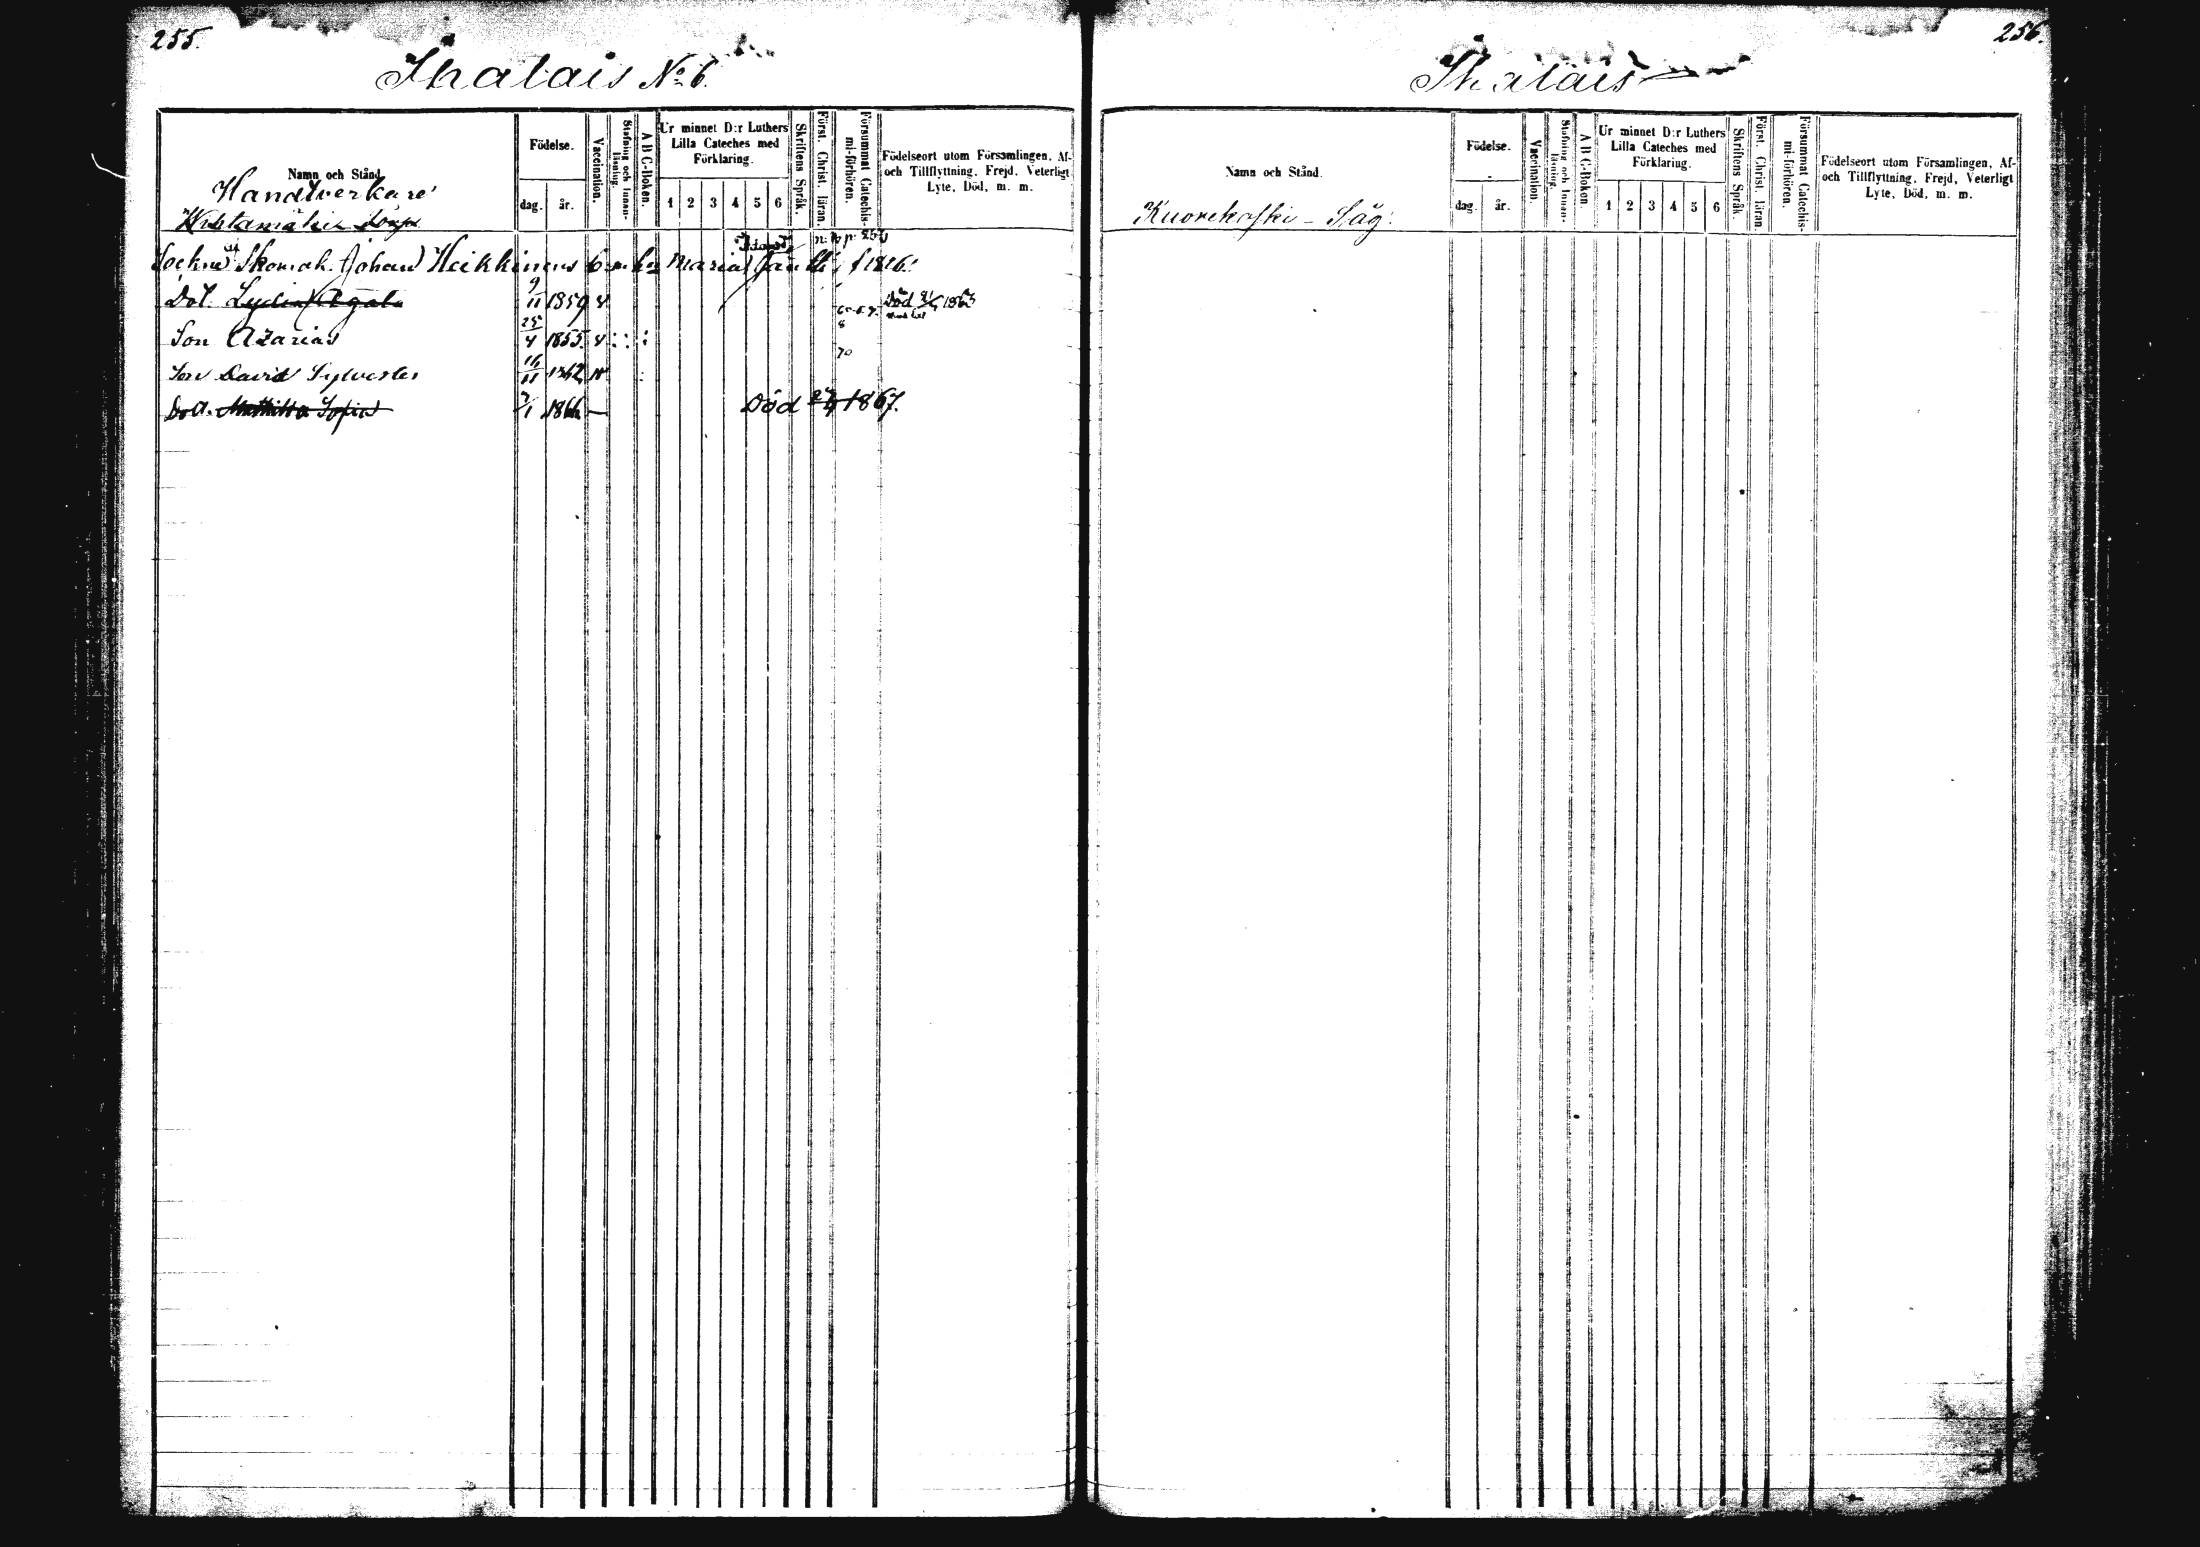 255.
Ihalais No 6.
Namn och Stånd.
Födelse.
dag. år.
Vaccination.
Stafning och Innan-läsning.
A B C-Boken.
Ur minnet D:r Luthers
Lilla Cateches med
Förklaring.
1 2 3 4 5 6
Skriftens Språk.
Först. Christ. läran.
Försummat Catechis-
mi-förhören.
Födelseort utom Församlingen, Af-
och Tillflyttning, Frejd, Veterligt
Lyte, Död, m. m.
Handtverkare
Skomak. Johan Heikkinens Maria f 1826.
Dot. Lydia Agata 9/11 1859 Död 1863
Son Azarias 25/4 1855
70
Son David Sylvester 16/11
Dot. Mathilda Sofia 7/1 Död 1867.
256.
Ihalais
Namn och Stånd.
Födelse.
dag. år.
Vaccination.
Stafning och Innan-läsning.
A B C-Boken.
Ur minnet D:r Luthers
Lilla Cateches med
Förklaring.
1 2 3 4 5 6
Skriftens Språk.
Först. Christ. läran
Försummat Catechis-
mi-förhören.
Födelseort utom Församlingen, Af-
och Tillflyttning, Frejd, Veterligt
Lyte, Död, m. m.
Kuorekoski - Såg.